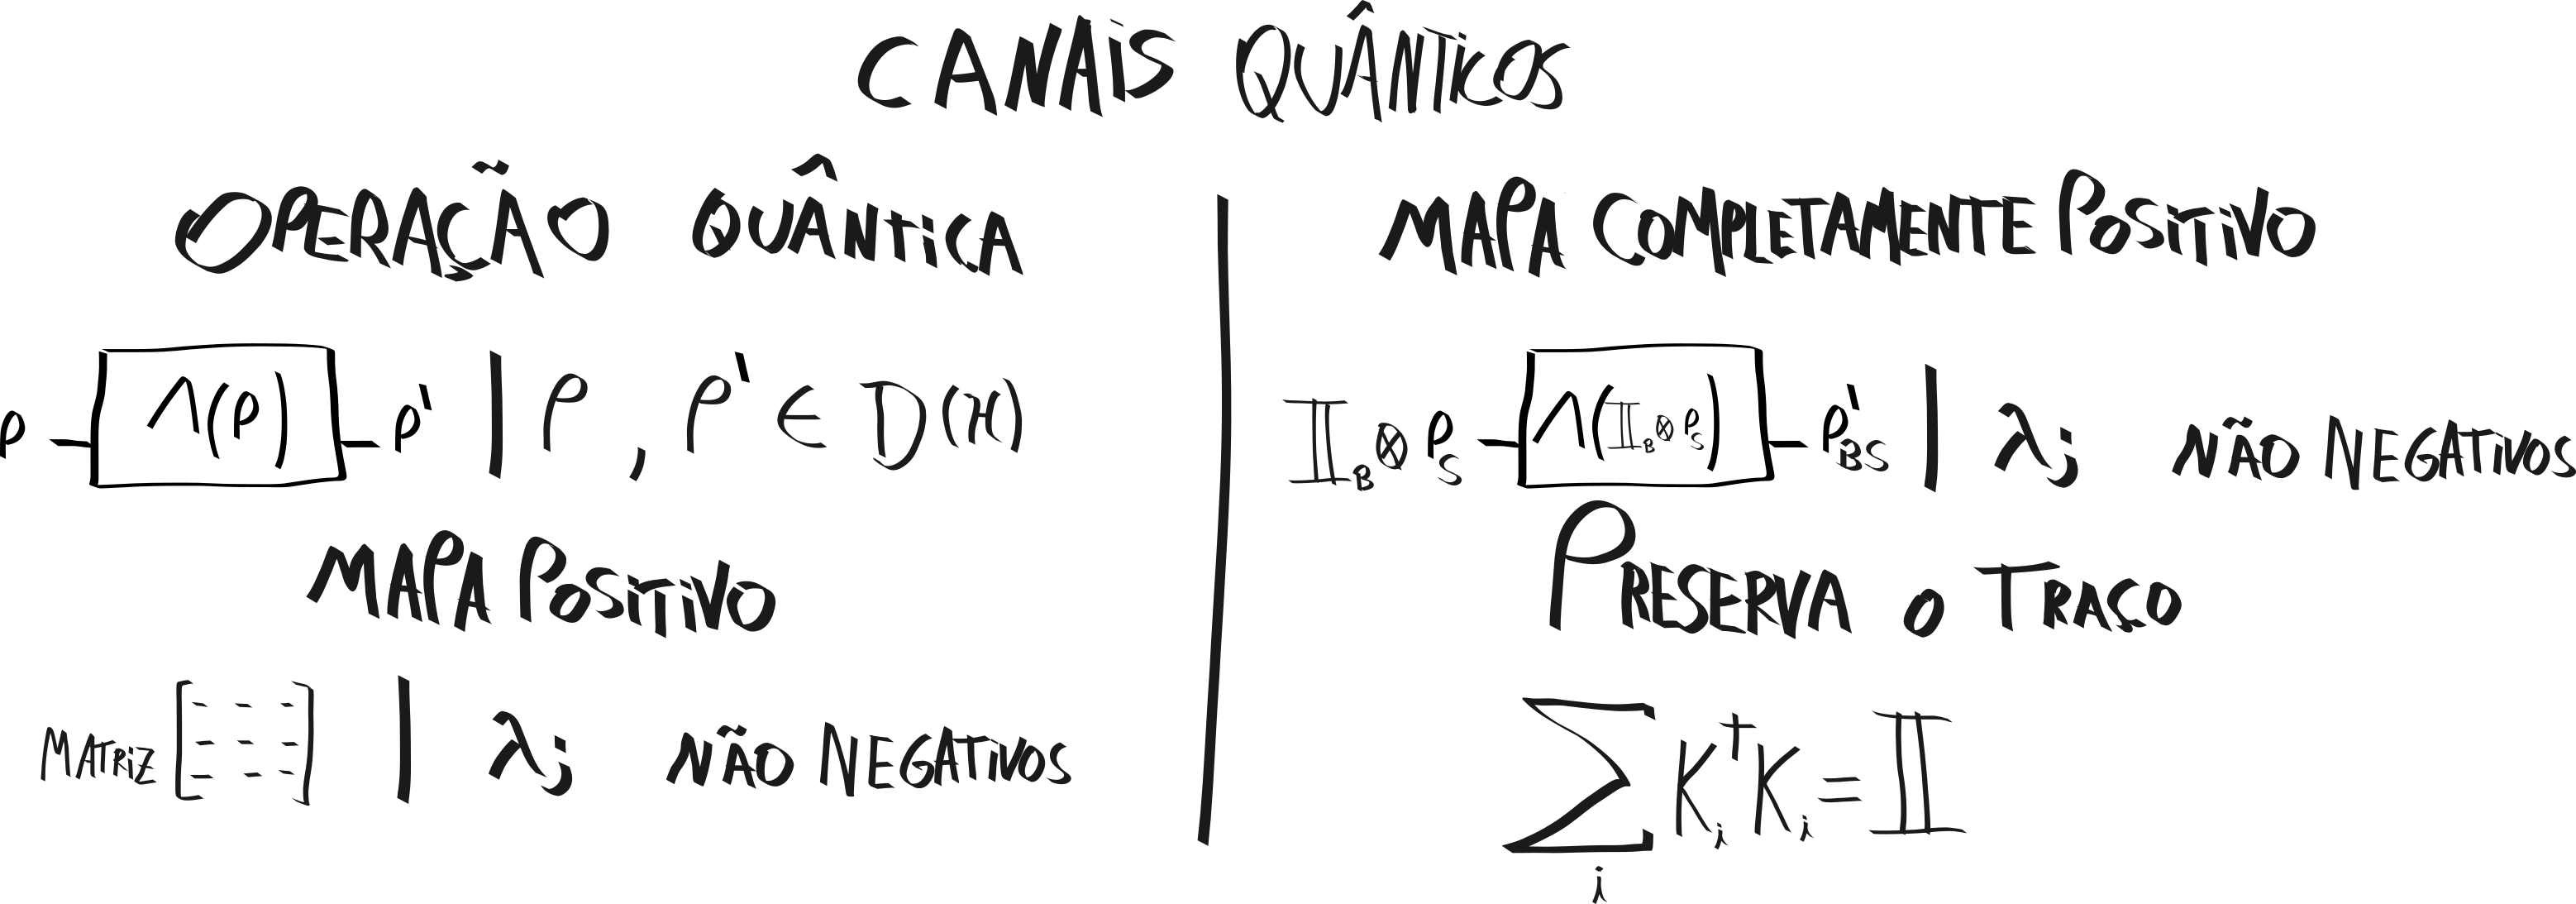 CANAIS QUÂNTICOS
OPERAÇÃO QUÂNTICA
ρ Λ(ρ) ρ' | ρ, ρ' ∈ D(ℋ)
MAPA POSITIVO
MATRIZ [ - - - - - - - - - ] | λj NÃO NEGATIVOS
MAPA COMPLETAMENTE POSITIVO
𝕀_B ⊗ ρ_S Λ(𝕀_B ⊗ ρ_S) ρ'_BS | λj NÃO NEGATIVOS
PRESERVA O TRAÇO
∑_i K_i^† K_i = 𝕀